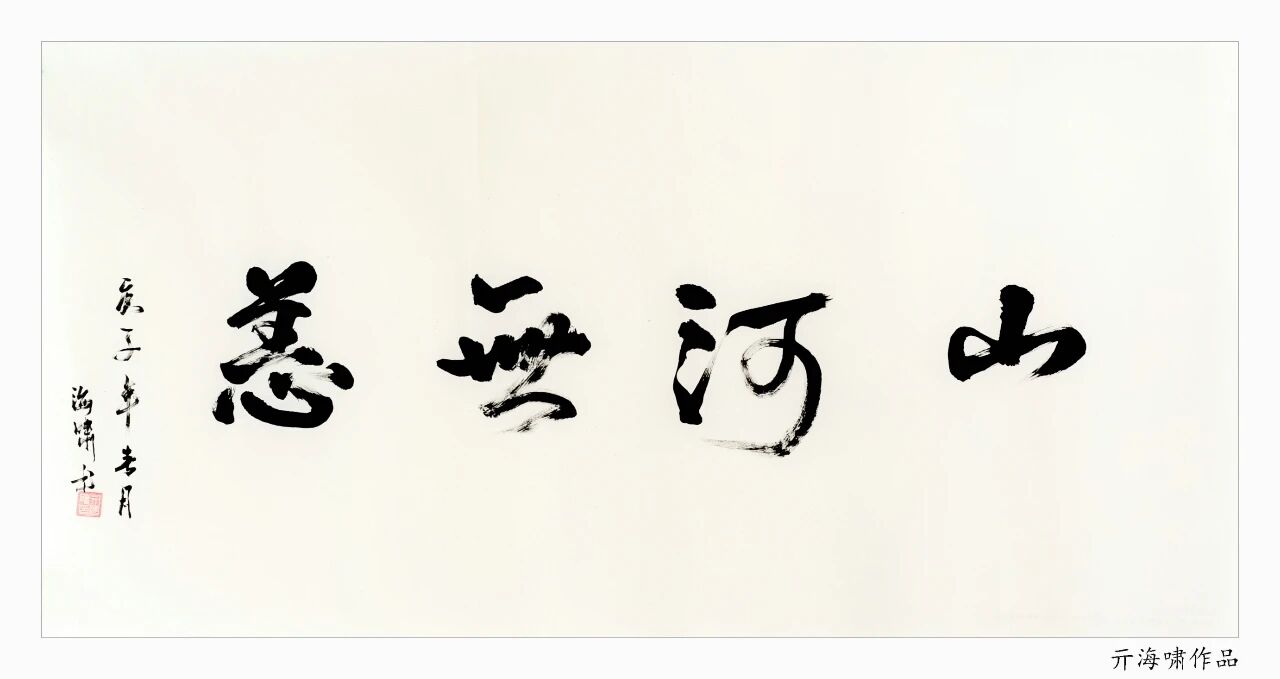 山河無恙
庚子年春月
海啸书
亓海啸作品